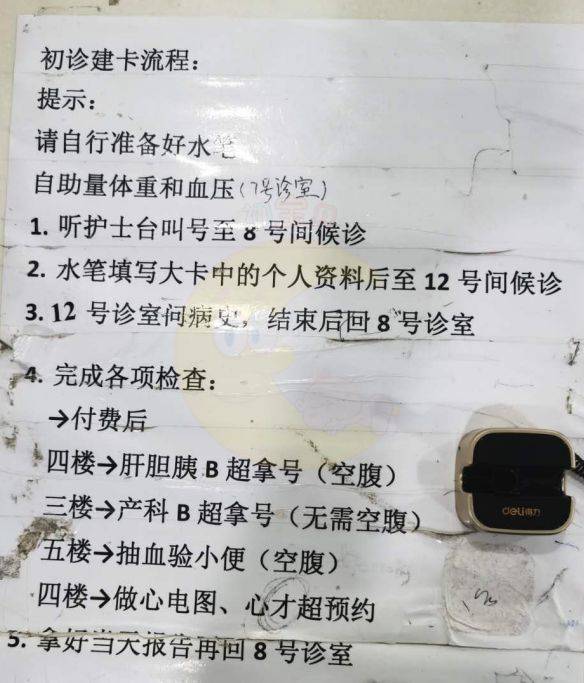 初诊建卡流程：
提示：
请自行准备好水笔
自助量体重和血压（7号诊室）
1. 听护士台叫号至 8 号间候诊
2. 水笔填写大卡中的个人资料后至 12 号间候诊
3. 12 号诊室问病史，结束后回 8 号诊室
4. 完成各项检查：
→付费后
四楼→肝胆胰 B 超拿号（空腹）
三楼→产科 B 超拿号（无需空腹）
五楼→抽血验小便（空腹）
四楼→做心电图、心才超预约
5. 拿好当天报告再回 8 号诊室
deli得力